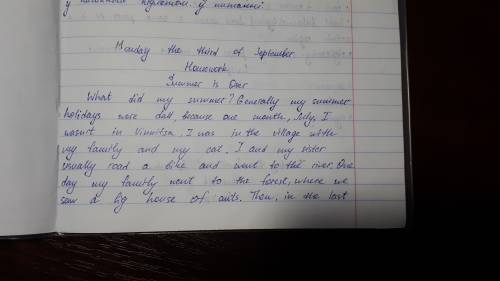 у
Monday the third of September.
Homework
Summer is Over
What did my summer? Generally my summer
holidays were dull, because one month, July, I
wasn't in Vinnitsa. I was in the village with
my family and my cat. I and my sister
usually road a bike and went to the river. One
day my family went to the forest, where we
saw a big house of ants. Then, in the last